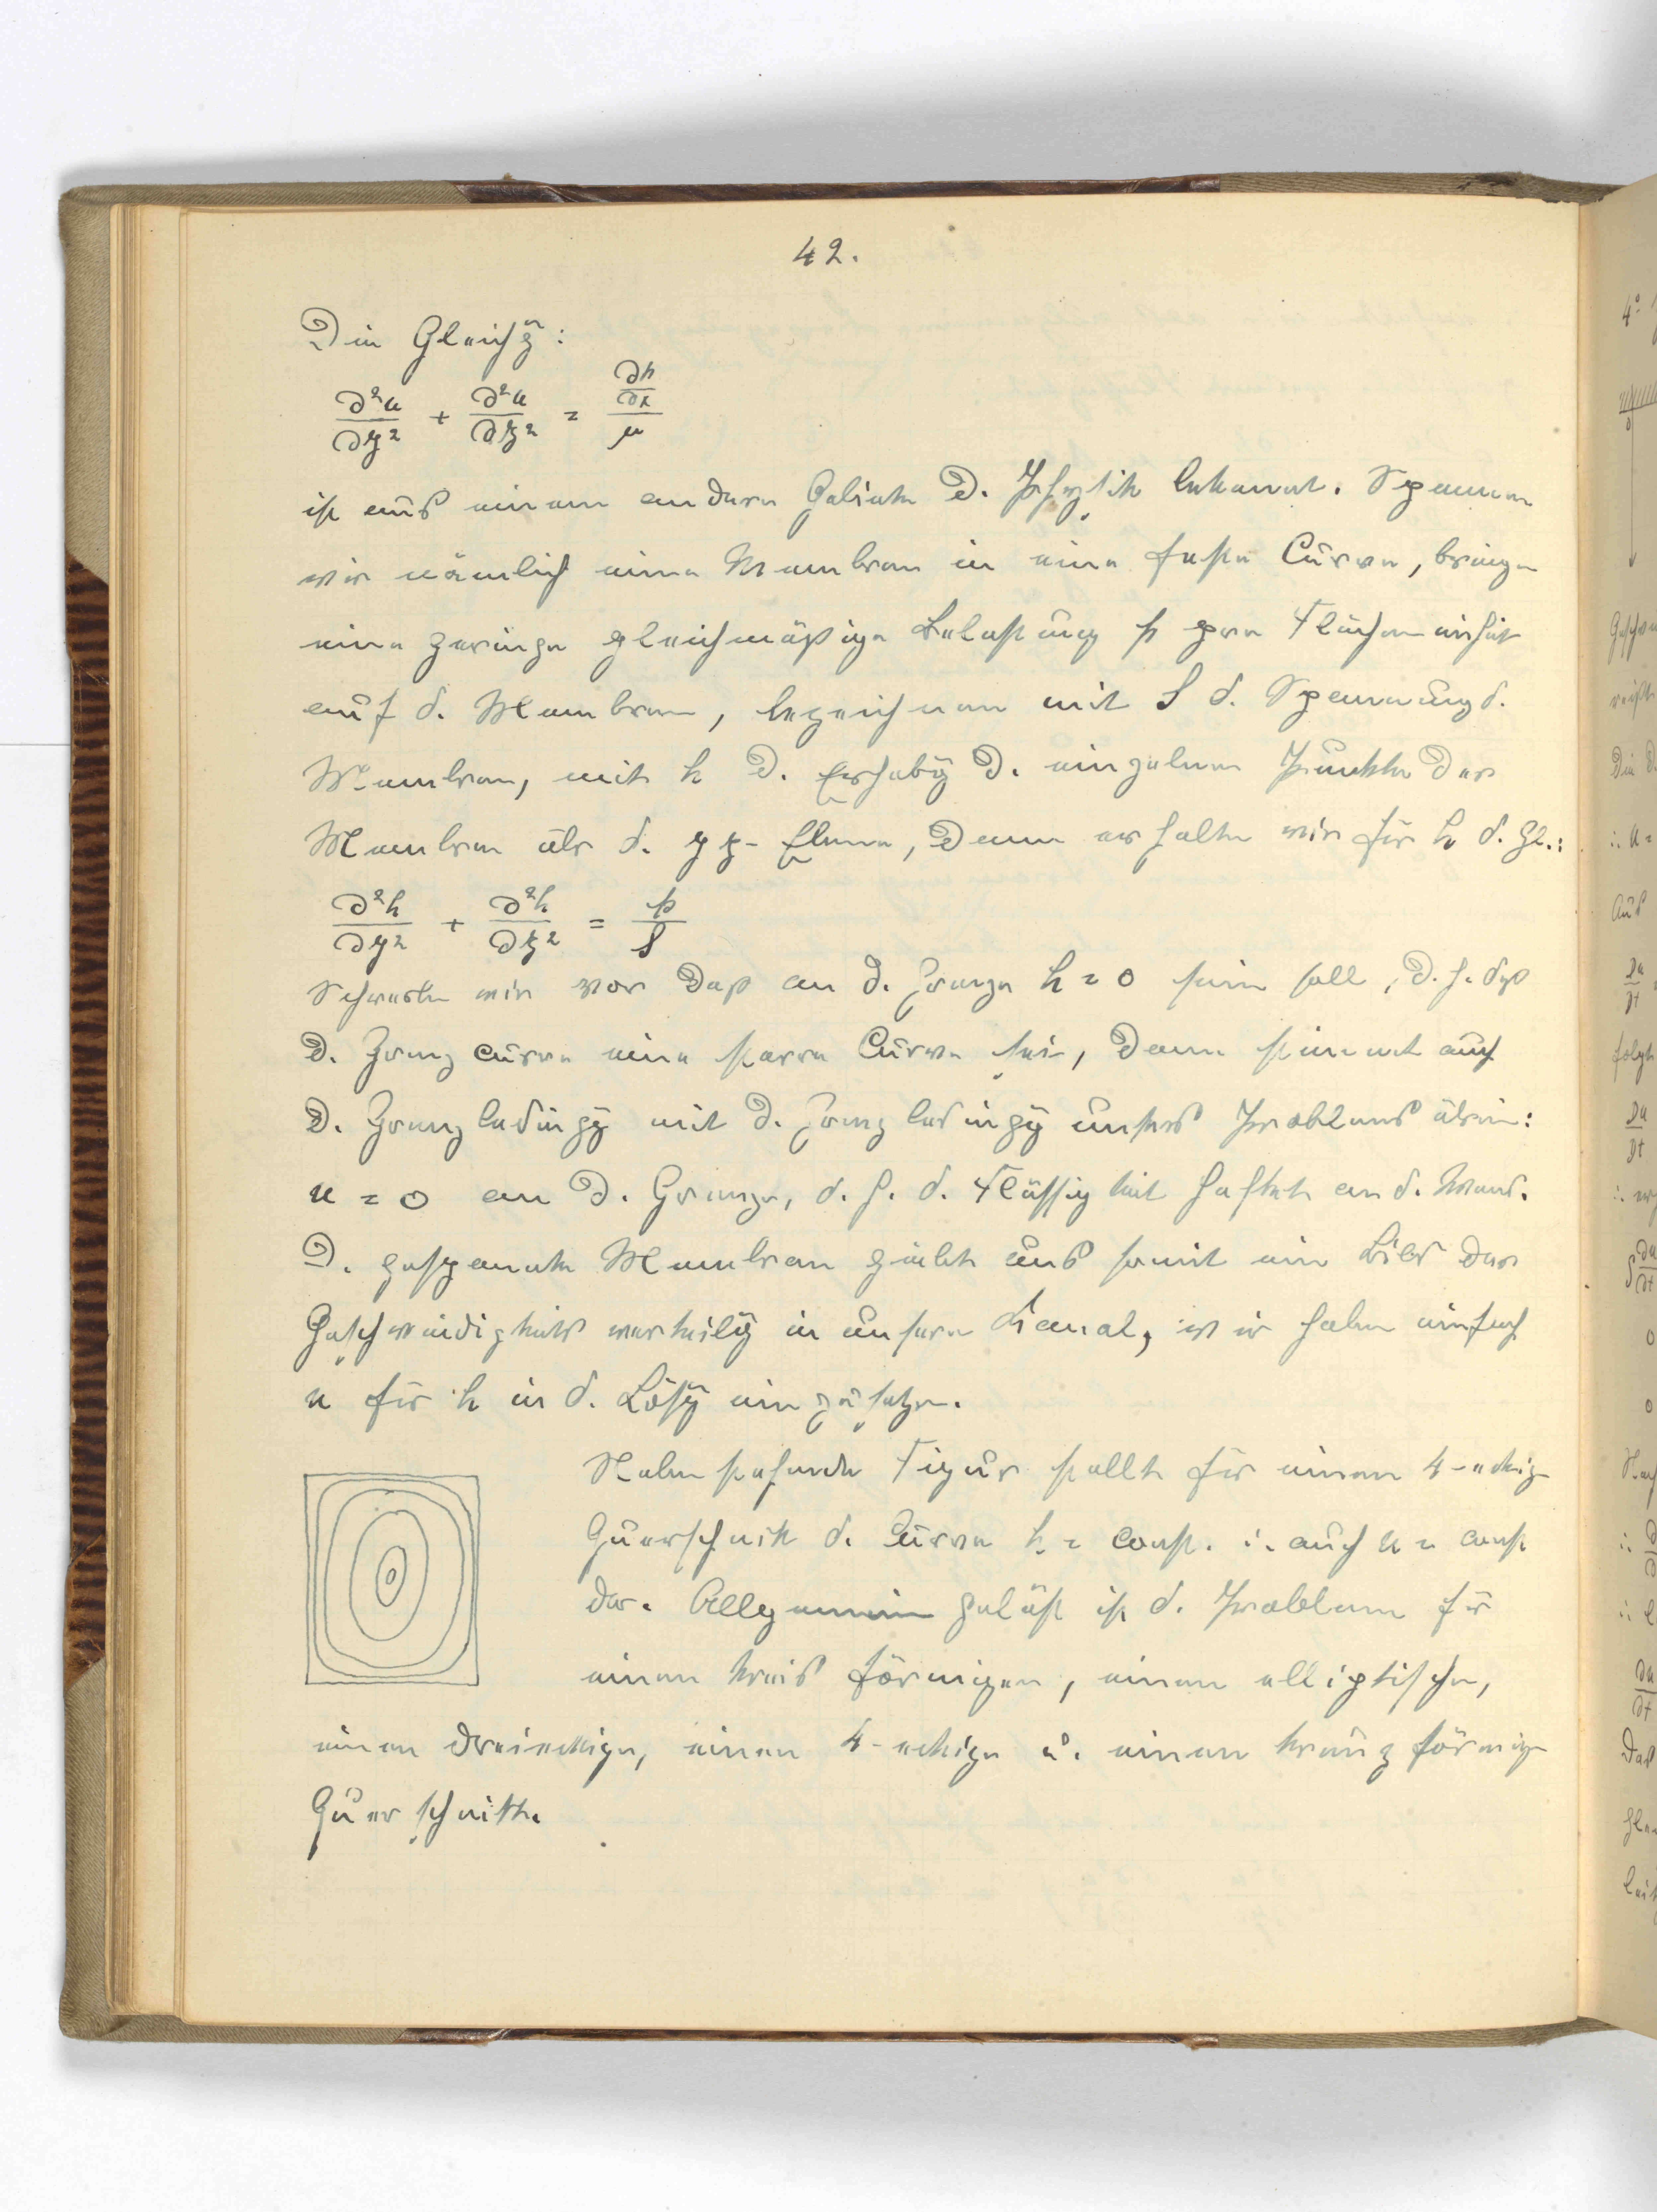 42.
Die Gleichg:
∂²u/∂y² + ∂²u/∂z² = ∂p/∂x / μ
ist aus einem andern Gebiete d. Physik bekannt. Spannen
wir nämlich eine Membran in eine feste Curve, bringen
eine geringe gleichmäßige Belastung p pro Flächeneinheit
auf d. Membran, bezeichnen mit S d. Spannung d.
Membran, mit h d. Erhebg d. einzelnen Punkte der
Membran über d. yz-Ebene, dann erhalten wir für h d. Gl.:
∂²h/∂y² + ∂²h/∂z² = p/S
Schreiben wir vor daß an d. Grenze h = 0 sein soll, d. h. daß
d. Grenzcurve eine starre Curve sei, dann stimmt auch
d. Grenzbedingg mit d. Grenzbedingg unsres Problems überein:
u = 0 an d. Grenze, d. h. d. Flüssigkeit haftet an d. Wand.
D. gespannte Membran giebt uns somit ein Bild der
Geschwindigkeitsverteilg in unserm Kanal, wir haben einfach
u für h in d. Lösg einzusetzen.
Nebenstehende Figur stellt für einen 4-eckigen
Querschnitt d. Curven h = const. ∴ auch u = const
dar. Allgemein gelöst ist d. Problem für
einen kreisförmigen, einen elliptischen,
einen dreieckigen, einen 4-eckigen u. einen kranzförmigen
Querschnitt.
4°
Aus
folgt